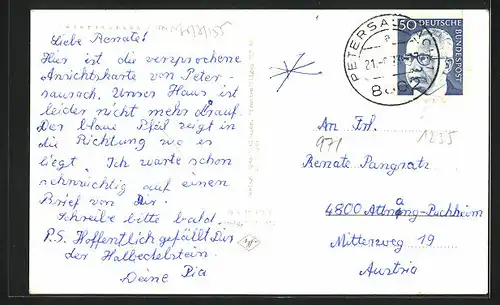 Liebe Renate!
Hier ist die versprochene
Ansichtskarte von Peter-
saurach. Unser Haus ist
leider nicht mehr drauf.
Der blaue Pfeil zeigt in
die Richtung wo es
liegt. Ich warte schon
sehnsüchtig auf einen
Brief von Dir.
Schreibe bitte bald.
P.S. Hoffentlich gefällt Dir
der Halbedelstein.
Deine Pia
50 DEUTSCHE
BUNDESPOST
PETERSAURACH
An Frl.
971
1235
Renate Pangratz
4800 Attnang-Puchheim
Mitterweg 19
Austria